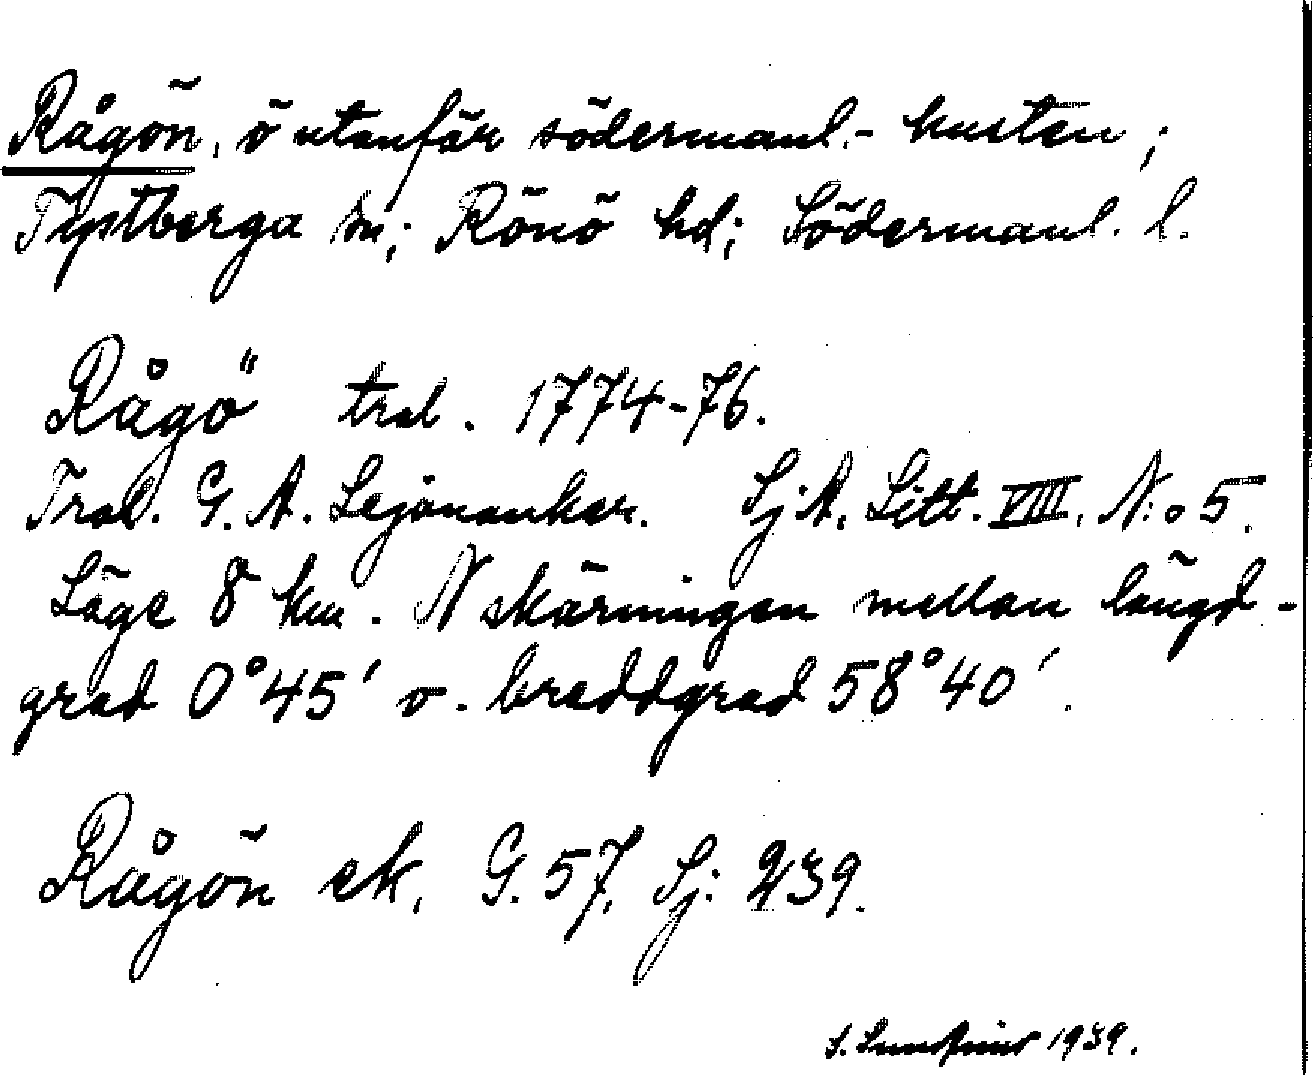 Rågön, ö utanför södermanl.- kusten;
Tystberga sn; Rönö hd; Södermanl. l.
Rågö tral. 1774-76.
Tral. G. A. Lejonankar. SjA. Litt. VIII. N:o 5.
Läge 8 km. N skärningen mellan längd-
grad 0°45' o. breddgrad 58°40'.
Rågön ek. G. 57, Sj: 239.
S. 1939.